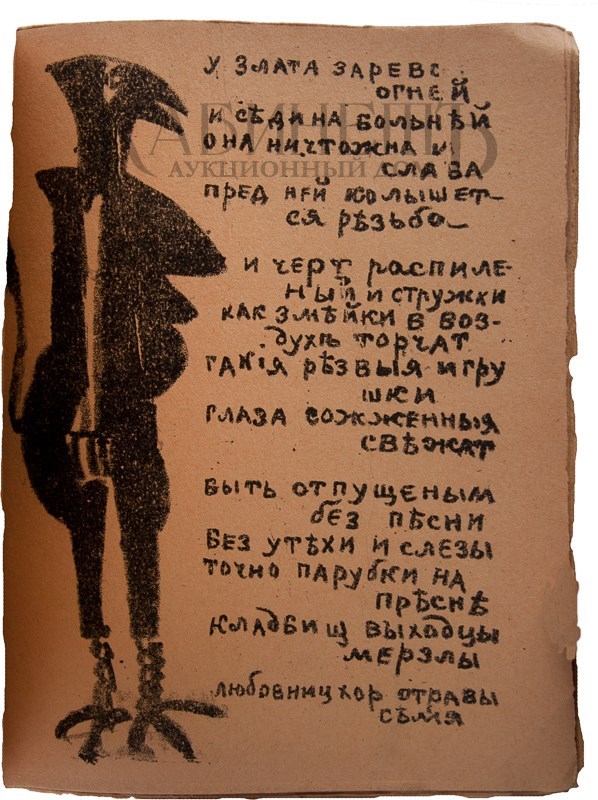 У ЗЛАТА ЗАРЕВО
ОГНЕЙ
И СѢДИНА БОЛЬНѢЙ
ОНА НИЧТОЖНА И
СЛАВА
ПРЕД НЕЙ КОЛЫШЕТ-
СЯ РѢЗЬБА
И ЧЕРТ РАСПИЛЕ-
НЫЙ И СТРУЖКИ
КАК ЗМѢЙКИ В ВОЗ-
ДУХѢ ТОРЧАТ
ТАКІЯ РѢЗВЫЯ ИГРУ
ШКИ
ГЛАЗА СОЖЖЕННЫЯ
СВѢЖАТ
БЫТЬ ОТПУЩЕНЫМ
БЕЗ ПѢСНИ
БЕЗ УТѢХИ И СЛЕЗЫ
ТОЧНО ПАРУБКИ НА
ПРѢСНѢ
КЛАДБИЩ ВЫХОДЦЫ
МЕРЗЛЫ
ЛЮБОВНИЦ ХОР ОТРАВЫ
СѢМЯ
КАБИНЕТЪ
АУКЦИОННЫЙ ДОМ